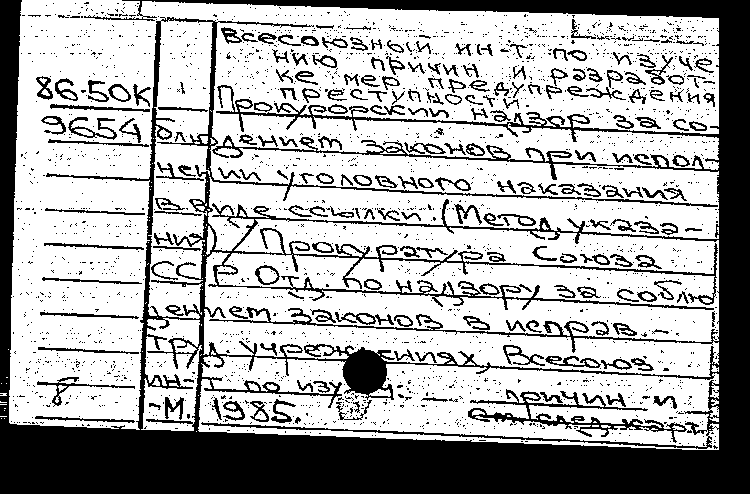 Всесоюзный ин-т по изуче-
нию причин и разработ-
ке мер предупреждения
преступности
86-50К
Прокурорский надзор за со-
9654 блюдением законов при испол-
нении уголовного наказания
в виде ссылки: (Метод. указа-
ния) / Прокуратура Союза
ССР. Отд. по надзору за соблю
дением законов в исправ.-
труд. учреждениях, Всесоюз.
8 ин-т по изуч. причин и
-М. 1985. См. след. карт.